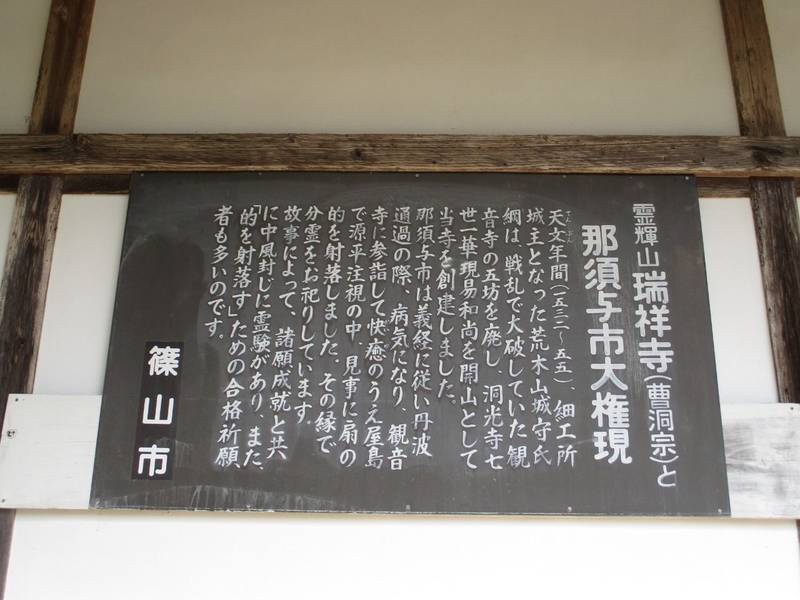 霊輝山瑞祥寺(曹洞宗)と
那須与市大権現
天文年間(一五三二～五五)、細工所
てんぶん
城主となった荒木山城守氏
綱は、戦乱で大破していた観
音寺の五坊を廃し、洞光寺七
世一華現易和尚を開山として
当寺を創建しました。
那須与市は義経に従い丹波
通過の際、病気になり、観音
寺に参詣して快癒のうえ屋島
で源平注視の中、見事に扇の
的を射落しました。その縁で
分霊をお祀りしています。
故事によって、諸願成就と共
に中風封じに霊験があり、また、
「的を射落す」ための合格祈願
者も多いのです。
篠山市